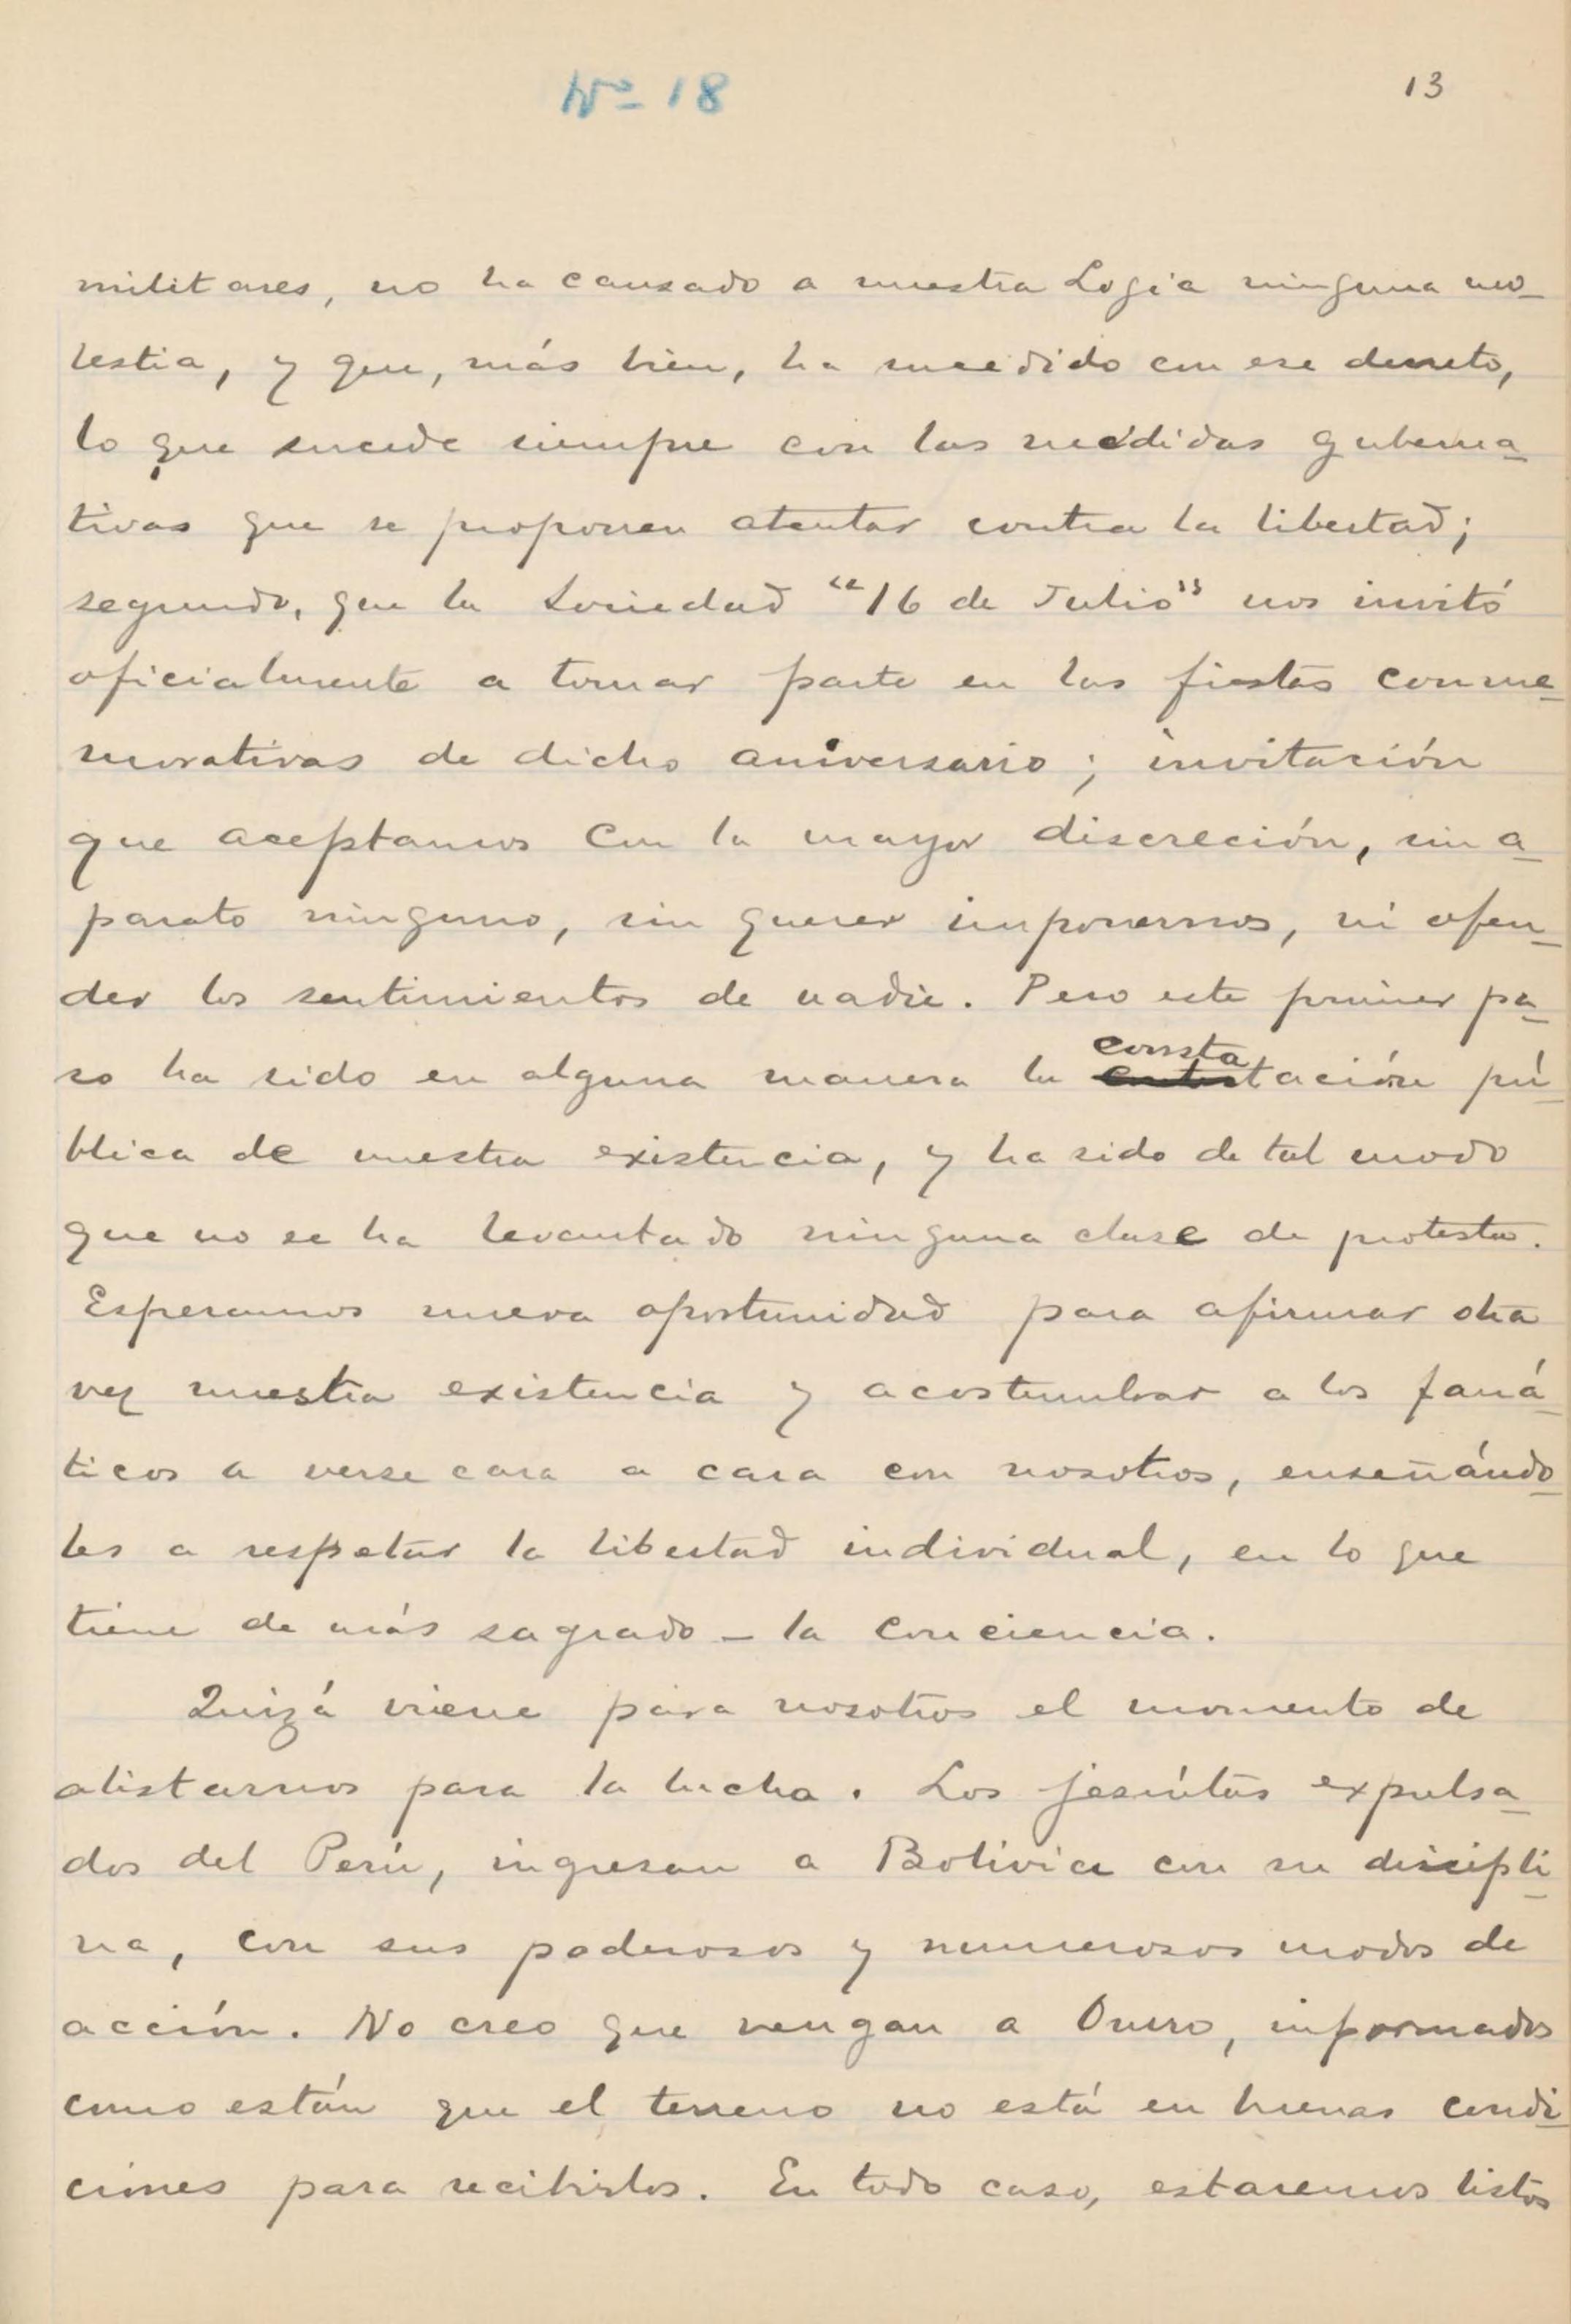 Nº 18
13
militares, no ha causado a nuestra Logia ninguna mo-
lestia, y que, más bien, ha sucedido con ese decreto,
lo que sucede siempre con las medidas guberna-
tivas que se proponen atentar contra la libertad;
segundo, que la Sociedad "16 de Julio" nos invitó
oficialmente a tomar parte en las fiestas conme-
morativas de dicho aniversario; invitación
que aceptamos con la mayor discreción, sin a-
parato ninguno, sin querer imponernos, ni ofen-
der los sentimientos de nadie. Pero este primer pa-
so ha sido en alguna manera la constatación pú-
blica de nuestra existencia, y ha sido de tal modo
que no se ha levantado ninguna clase de protestas.
Esperamos nueva oportunidad para afirmar otra
vez nuestra existencia y acostumbrar a los faná-
ticos a verse cara a cara con nosotros, enseñándo-
les a respetar la libertad individual, en lo que
tiene de más sagrado - la conciencia.
Quizá viene para nosotros el momento de
alistarnos para la lucha. Los jesuítas expulsa-
dos del Perú, ingresan a Bolivia con su discipli-
na, con sus poderosos y numerosos modos de
acción. No creo que vengan a Oruro, informados
como están que el terreno no está en buenas condi-
ciones para recibirlos. En todo caso, estaremos listos